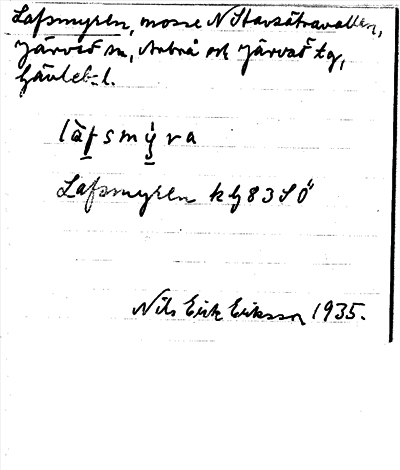 Lafsmyren, mosse N Stavsätravallen,
Järvsö sn, Arbrå och Järvsö tg,
Gävleb. l.
làfsmýra
Lafsmyren kbl 83 SÖ
Nils Erik Eriksson 1935.